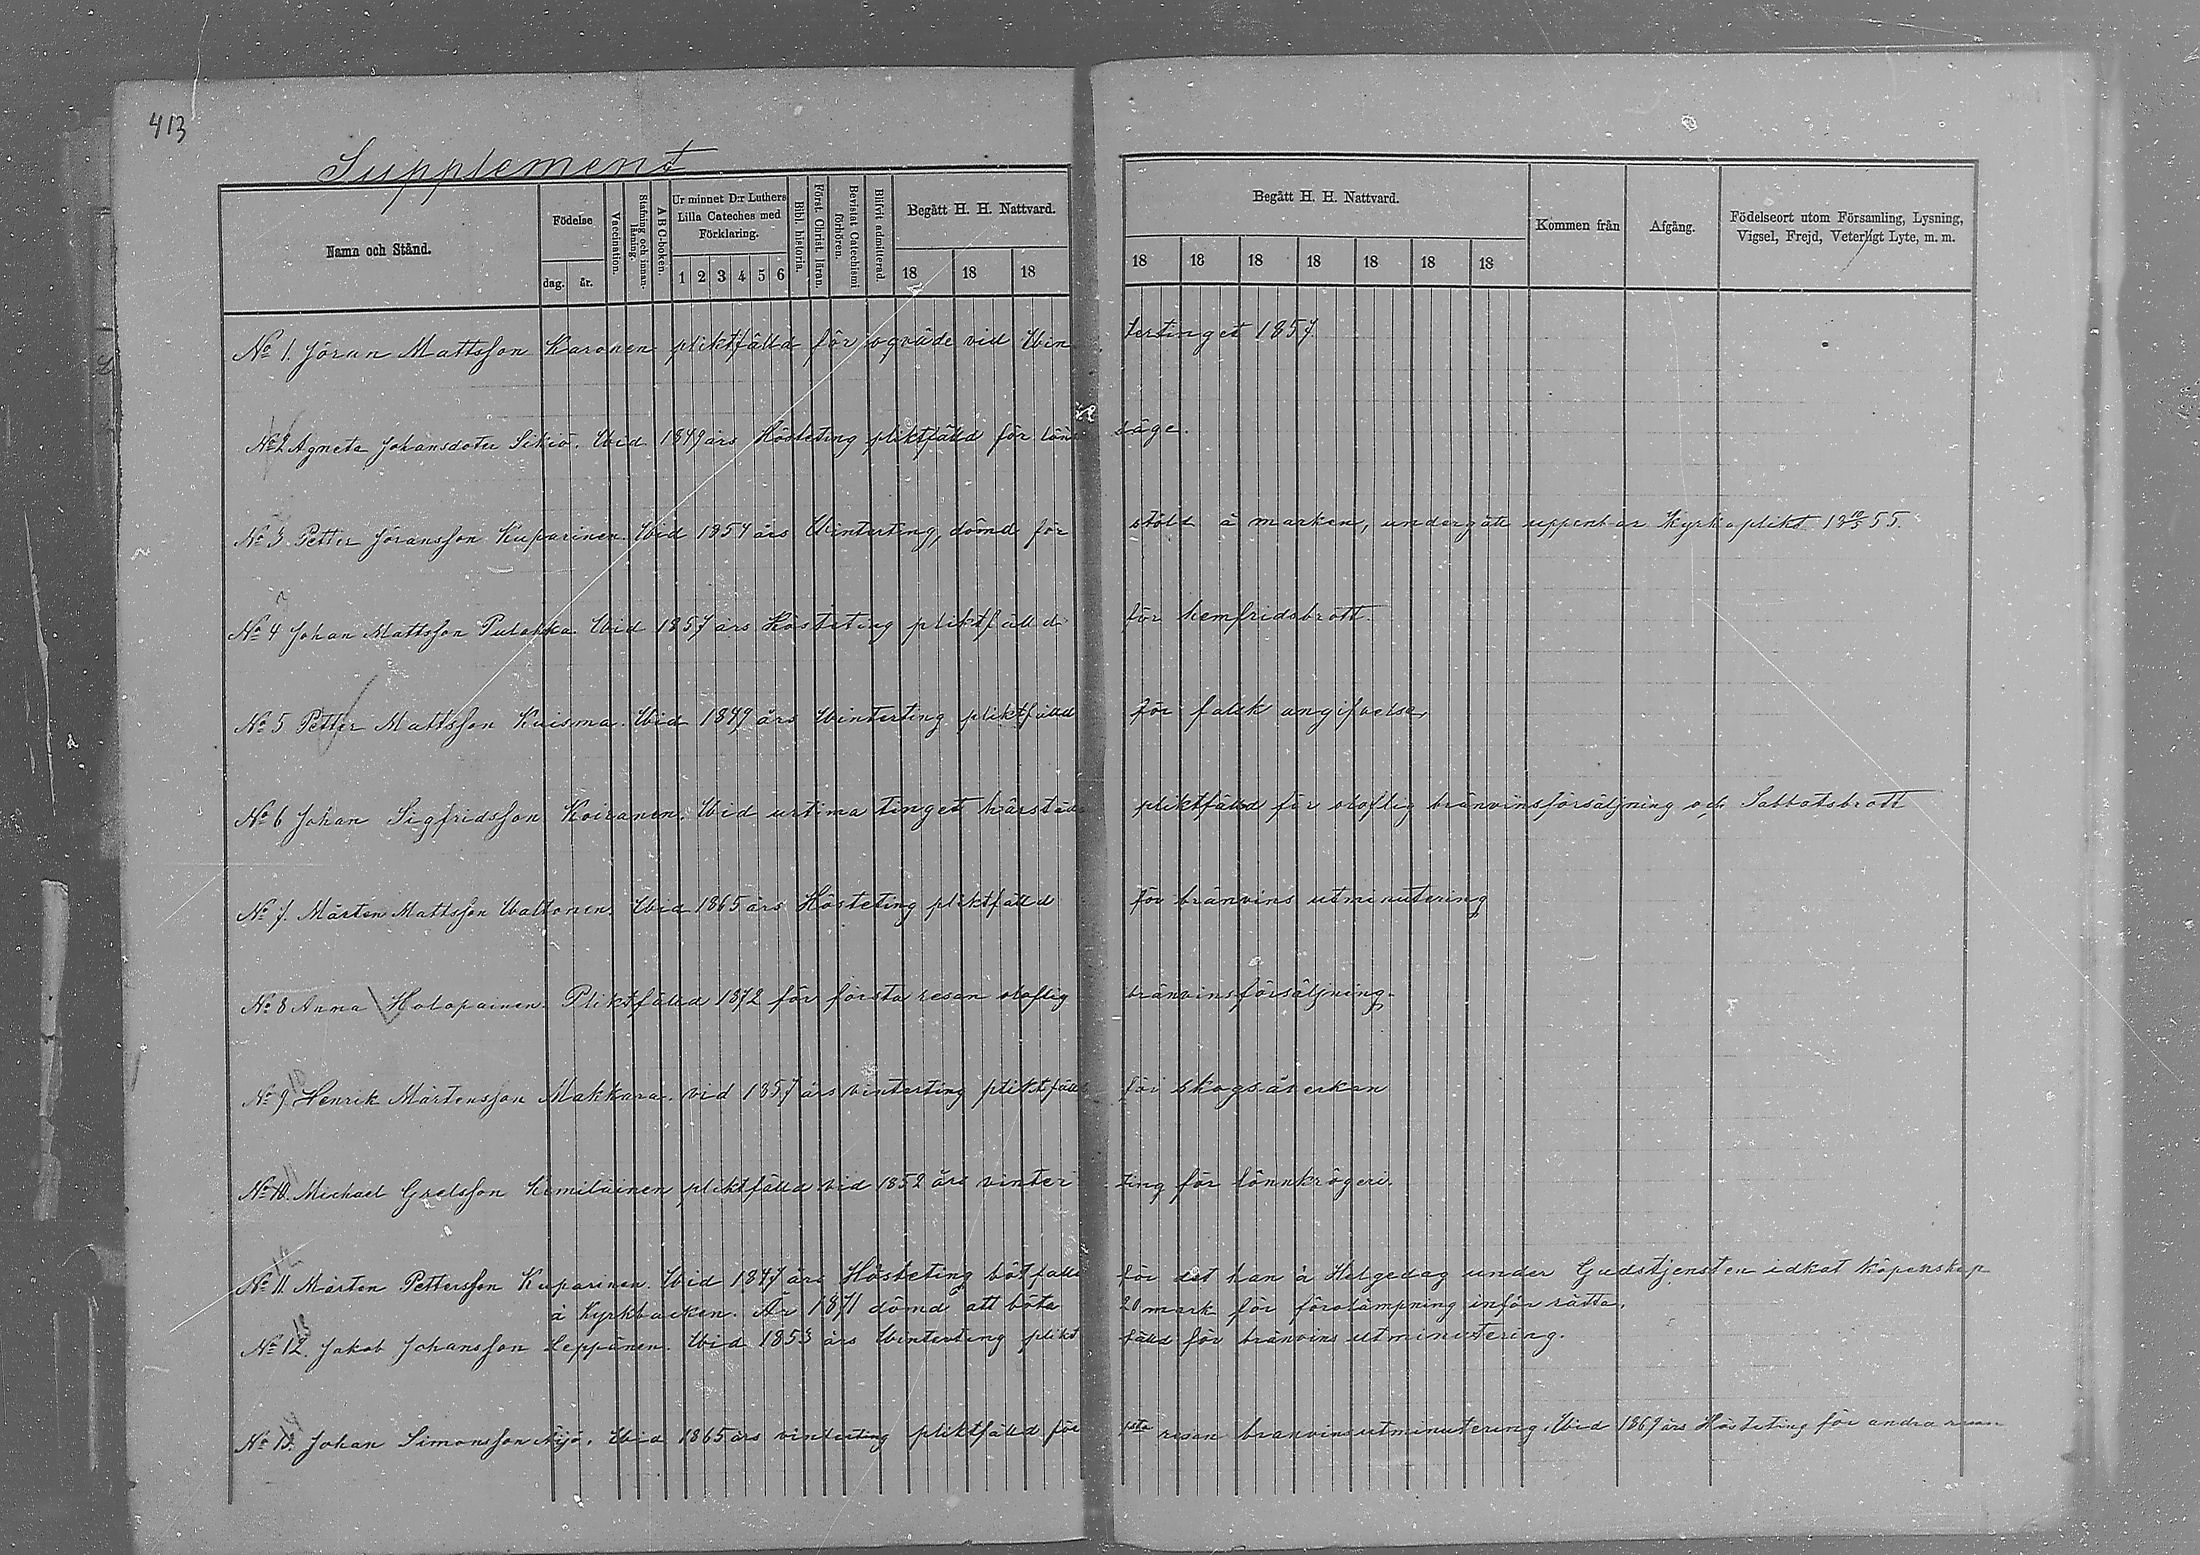 413
Supplement
Namn och Stånd.
Födelse
dag.
år.
Vaccination.
Stafning och innan-läsning.
A B C-boken.
Ur minnet D:r Luthers Lilla Cateches med Förklaring.
1 2 3 4 5 6
Bibl. historia.
Först. Christ. läran.
Bevistat Catechismi förhören.
Blifvit admitterad.
Begått H. H. Nattvard.
18 18 18
Begått H. H. Nattvard.
18 18 18 18 18 18 18
Kommen från
Afgång.
Födelseort utom Församling, Lysning, Vigsel, Frejd, Veterligt Lyte, m. m.
No 1. Jöran Mattsson Karonen pliktfälld för ogväde vid Win tertinget 1857
No 2 Agneta Johansdoter Sikiö. Wid 1849 års Hösteting pliktfälld för lön läge.
No 3. Petter Jöransson Kuparinen. Wid 1854 års Winterting, dömd för stöld å marken, undergått uppenbar Kyrkoplikt 18 55.
No 4 Johan Mattsson Pulakka. Wid 1857 års Hösteting pliktfälld för hemfridsbrott.
No 5. Petter Mattsson Kuisma. Wid 1849 års Winterting pliktfälld för falsk angifvelse,
No 6 Johan Sigfridsson Koiranen. Wid urtima tinget härstädes pliktfälld för oloflig bränvinsförsäljning och Sabbatsbrott
No 7. Mårten Mattsson Waltonen. Wid 1865 års Hösteting pliktfälld för bränvins utminutering
No 8 Anna Holopainen. Pliktfälld 1872 för första resan oloflig bränvinsförsäljning.
No 9. Henrik Mårtensson Makkara. vid 1857 års vinterting pliktfälld för skogsåverkan
No 10. Michael Grelsson Kemiläinen pliktfälld vid 1852 års vinter ting för lönnkrögeri.
No 11 Mårten Pettersson Kuparinen. Wid 1847 års Hösteting bötfälld för det han å Helgedag under Gudstjensten idkat köpenskap
å Kyrkbacken. År 1871 dömd att böta 20 mark för förolämpning inför rätta.
No 12. Jakob Johansson Leppänen. Wid 1853 års Winterting plikt fälld för bränvins utminutering.
No 13. Johan Simonsson Äijö. Wid 1865 års vinterting pliktfälld för 1sta resan bränvinsutminutering. Wid 1869 års Hösteting för andra resan